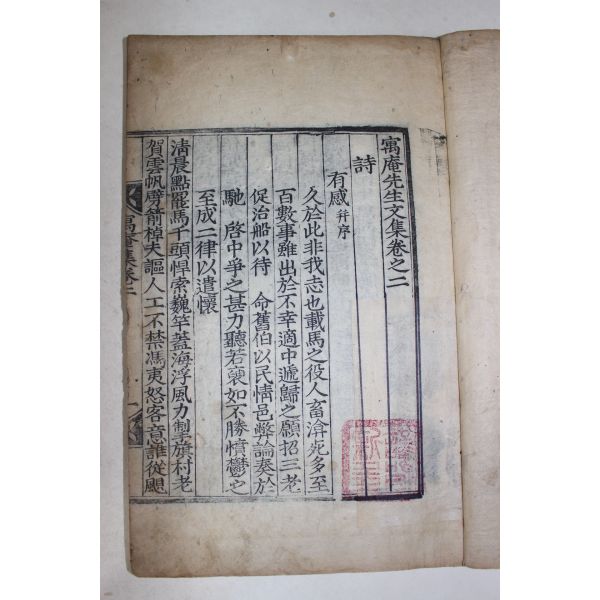 寓庵先生文集卷之二
詩
有感 幷序
久於此非我志也載馬之役人畜渰死多至
百數事雖出於不幸適中遞歸之願招三老
促治船以待 命舊伯以民情邑弊論奏於
馳 啓中爭之甚力聽若褎如不勝憤鬱之
至成二律以遣懷
淸晨點罷馬千頭悍索巍竿蓋海浮風力掣旗村老
賀雲帆劈箭棹夫謳人工不禁馮夷怒客意誰從颶
寓庵集卷二